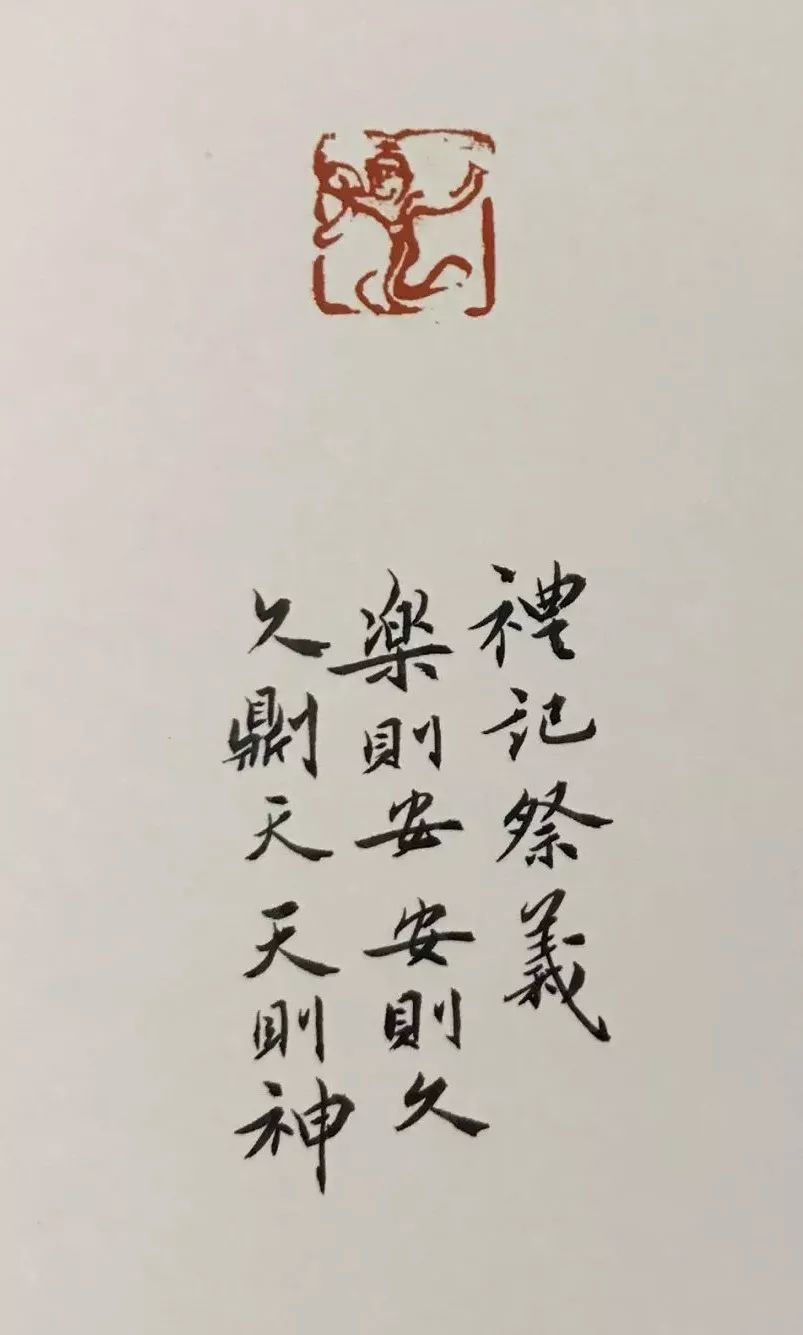 禮記祭義
楽則安安則久
久鼎刂天天則神